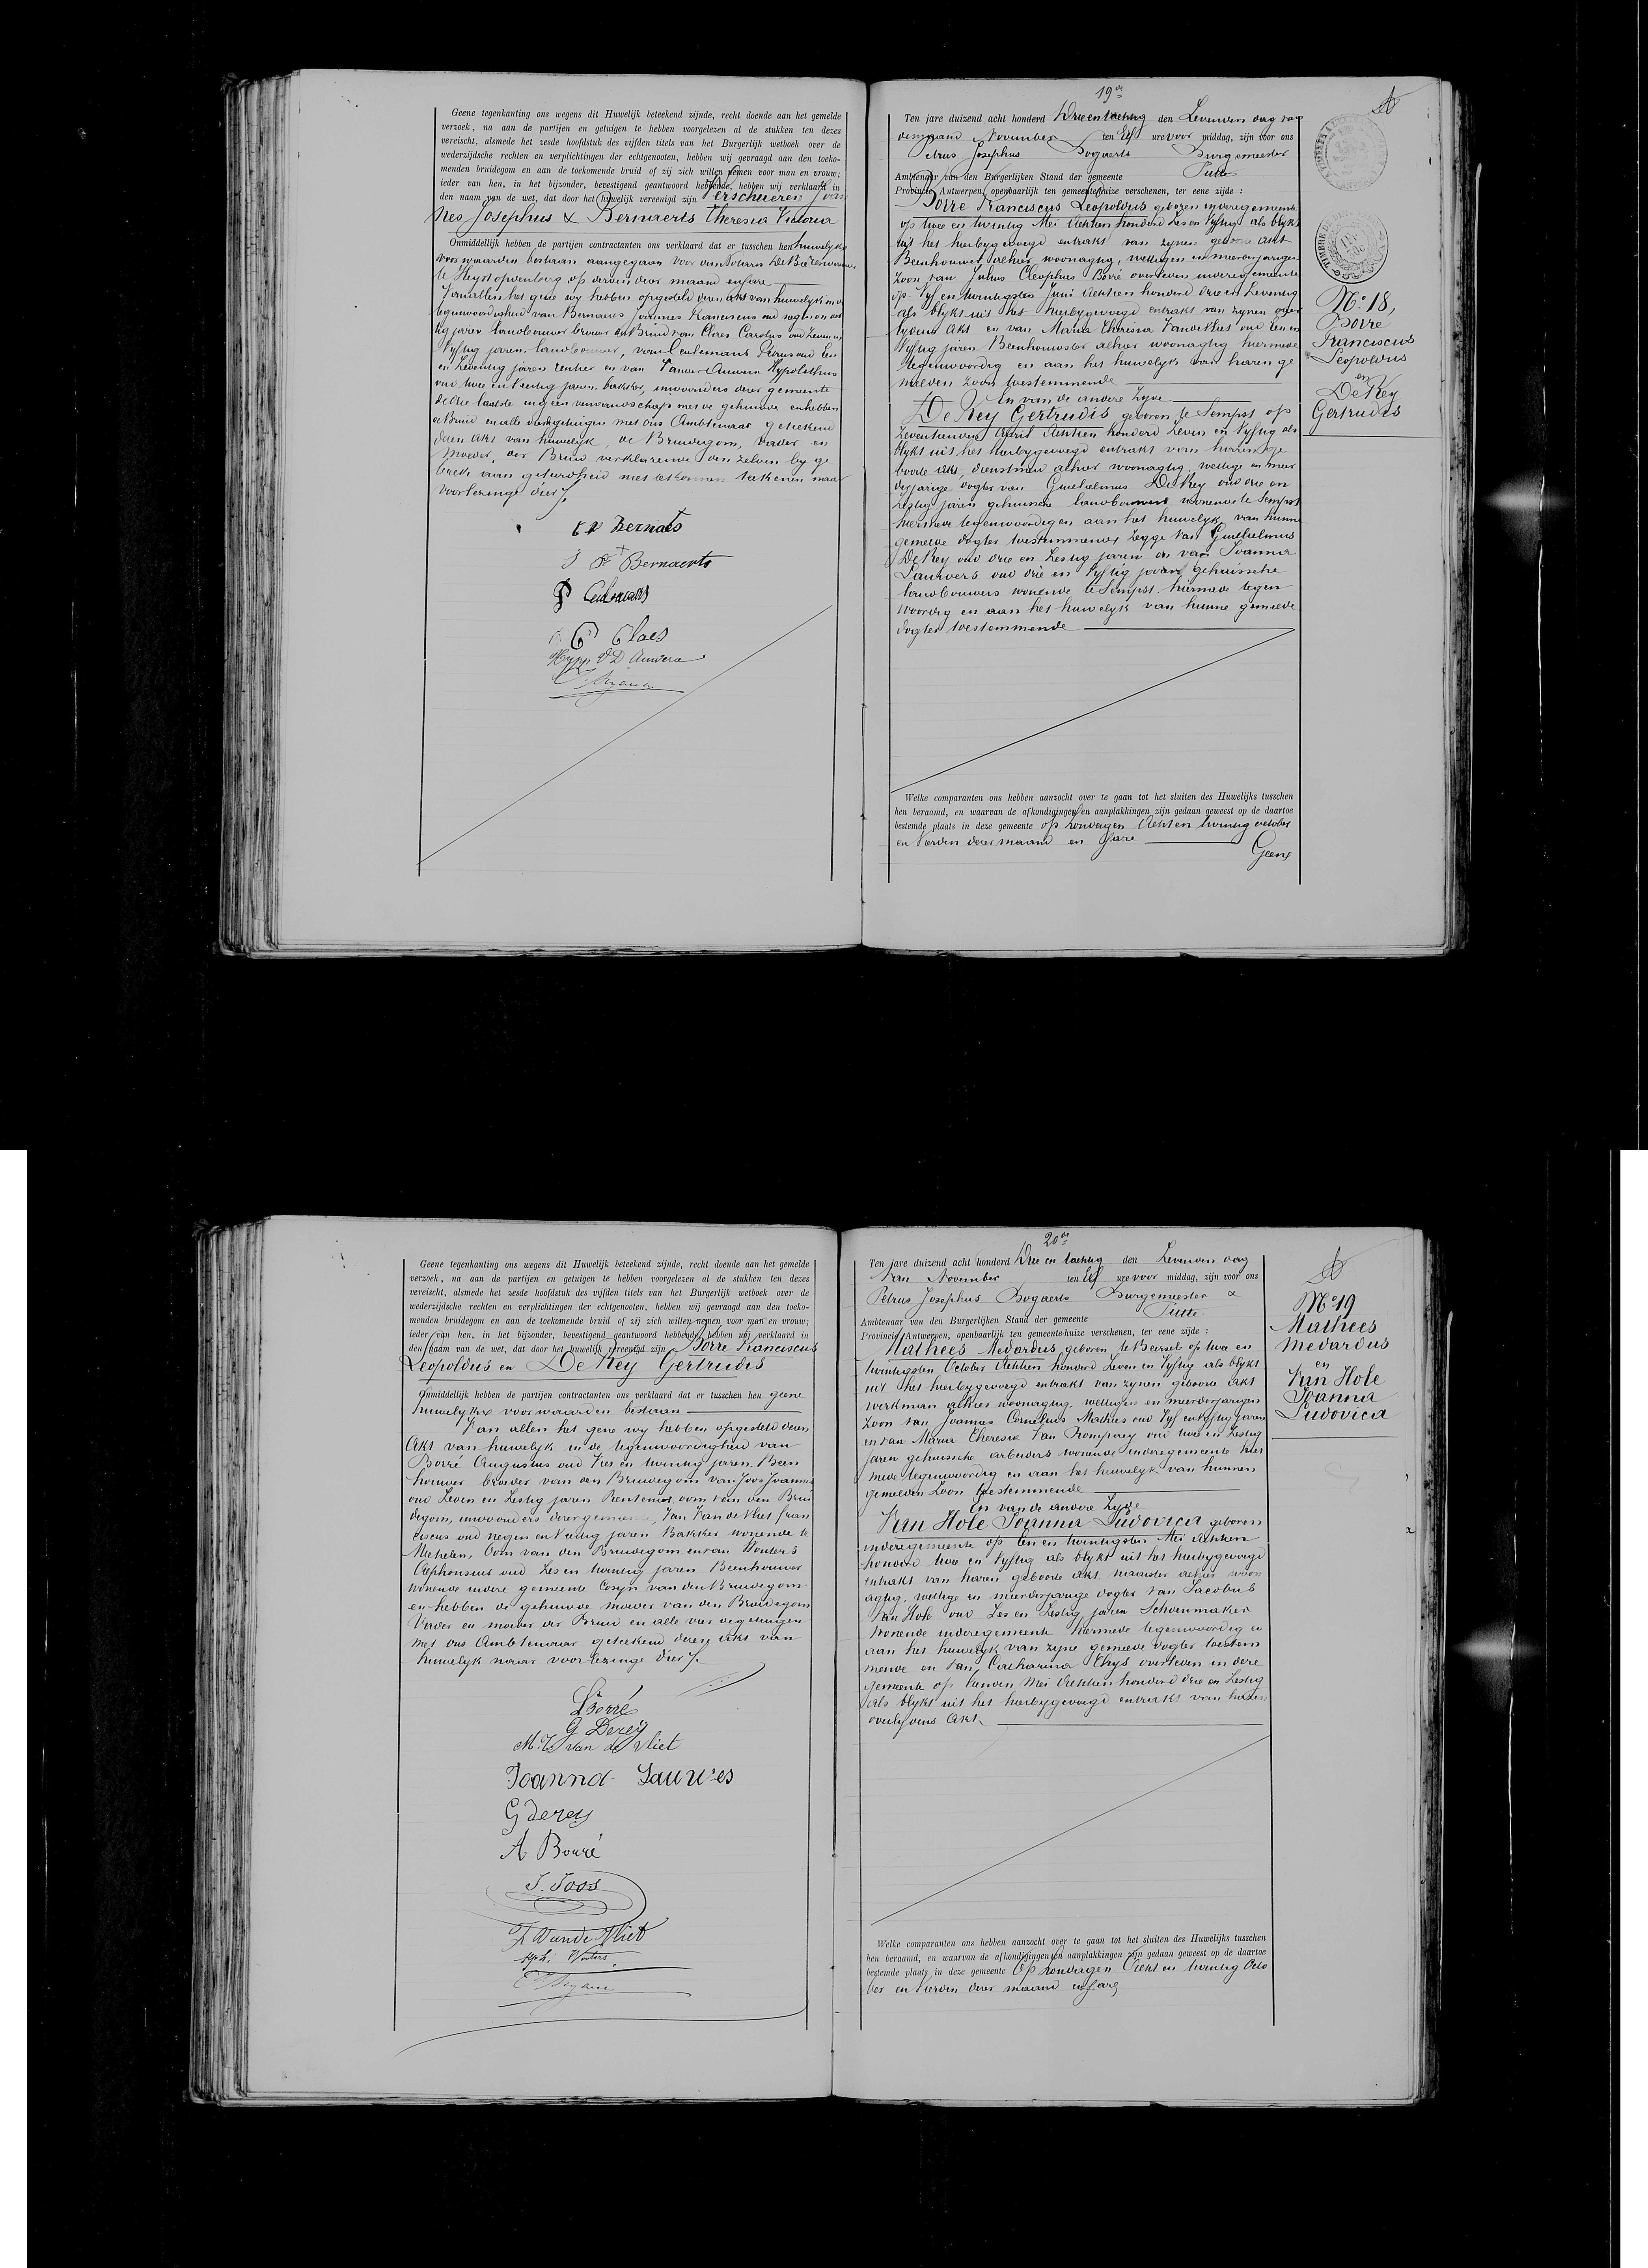 Geene tegenkanting ons wegens dit Huwelijk beteekend zijnde, recht doende aan het gemelde
verzoek, na aan de partijen en getuigen te hebben voorgelezen al de stukken ten dezes
vereischt, alsmede het zesde hoofdstuk des vijfden titels van het Burgerlijk wetboek over de
wederzijdsche rechten en verplichtingen der echtgenooten, hebben wij gevraagd aan den toeko-
menden bruidegom en aan de toekomende bruid of zij zich willen nemen voor man en vrouw;
ieder van hen, in het bijzonder, bevestigend geantwoord hebbende, hebben wij verklaard in
den naam van de wet, dat door het huwelijk vereenigd zijn Verschueren Joan
nes Josephus & Bernaerts Theresia Victoria
Onmiddellijk hebben de partijen contractanten ons verklaard dat er tusschen hen huwelyks
voorwaarden bestaan aangegaan voor den Notaris
te Heyst opdenberg op derden dezer maand en jare
Van allen het gene wy hebben opgesteld dezen akt van huwelyk in de
tegenwoordigheid van Bernaerts Joannes Franciscus oud negen en
tig jaren landbouwer broeder der Bruid van Claes Carolus oud zeven en
vyftig jaren landbouwer, van Ceulemans Petrus oud een
en zeventig jaren rentier en van Vander Auwera Hypolithus
oud twee en veertig jaren, bakker, inwoonders dezer gemeente
de drie laatste in geen verwandschap met de gehuwde en hebben
de Bruid en alle vier de getuigen met ons Ambtenaar geteekend
dezen akt van huwelyk, de Bruidegom, vader en
moeder der Bruid verklarende den zelven by ge
brek aan geleerdheid niet te konnen teekenen naar
voorlezinge dier /.
Bernaets
J F Bernaerts
P Ceulemans
C Claes
Hypp V D Auwera
19de
Ten jare duizend acht honderd Drie en tachtig den Zevenden dag van
de maand November ten Elf ure voor middag, zijn voor ons
Petrus Josephus Bogaerts Burgemeester
Ambtenaar van den Burgerlijken Stand der gemeente Putte
Provincie Antwerpen, openbaarlijk ten gemeentehuize verschenen, ter eene zijde :
Borré Franciscus Leopoldus geboren in deze gemeente
op twee en twintig Mei Achttien honderd Zes en Vyftig als blykt
uit het hierbygevoegd extrakt van zynen geboorte akt
Beenhouwer, alhier woonagtig, wettigen en meerderjarigen
zoon van Julius Cleophus Borré overleden in deze gemeente
op Vyf en twintigsten Juni Achttien honderd drie en Zeventig
als blykt uit het hierbygevoegd extrakt van zynen over
lydens Akt en van Maria Theresia Van de Vliet oud een en
Vyftig jaren Beenhouwster alhier woonagtig hiermede
tegenwoordig en aan het huwelyk van haren ge
melden zoon toestemmende
En van de andere zyde
De Rey Gertrudis geboren te Sempst op
zeventienden April Achttien honderd Zeven en Vyftig als
blykt uit het hierbygevoegd extrakt van haren ge
boorte akt, dienstmeid alhier woonagtig wettige en meer
derjarige dogter van Guilielmus De Rey oud drie en
zestig jaren gehuische landbouwers wonende te Sempst
hiermede tegenwoordig en aan het huwelyk van hunne
gemelde dogter toestemmende zegge van Guilielmus
De Rey oud drie en Zestig jaren en van Joanna
Lauwers oud drie en Vyftig jaren gehuische
landbouwers wonende te Sempst hiermede tegen
woordig en aan het huwelyk van hunne gemelde
dogter toestemmende
Welke comparanten ons hebben aanzocht over te gaan tot het sluiten des Huwelijks tusschen
hen beraamd, en waarvan de afkondigingen en aanplakkingen zijn gedaan geweest op de daartoe
bestemde plaats in deze gemeente op Zondagen Acht en twintig october
en Vierden dezer maand en jare
Geene
No 18,
Borré
Franciscus
Leopoldus
en
De Rey
Gertrudis
Geene tegenkanting ons wegens dit Huwelijk beteekend zijnde, recht doende aan het gemelde
verzoek, na aan de partijen en getuigen te hebben voorgelezen al de stukken ten dezes
vereischt, alsmede het zesde hoofdstuk des vijfden titels van het Burgerlijk wetboek over de
wederzijdsche rechten en verplichtingen der echtgenooten, hebben wij gevraagd aan den toeko-
menden bruidegom en aan de toekomende bruid of zij zich willen nemen voor man en vrouw;
ieder van hen, in het bijzonder, bevestigend geantwoord hebbende, hebben wij verklaard in
den naam van de wet, dat door het huwelijk vereenigd zijn Borré Franciscus
Leopoldus en De Rey Gertrudis
Onmiddellijk hebben de partijen contractanten ons verklaard dat er tusschen hen geene
huwelyksche voorwaarden bestaan
Van allen het gene wy hebben opgesteld dezen
Akt van huwelyk in de tegenwoordigheid van
Borré Augustus oud Vier en twintig jaren, Been
houwer broeder van den Bruidegom van Joos Joannes
oud Zeven en Zestig jaren Rentenier, oom van den Brui
degom, inwoonders dezer gemeente, Van Van de Vliet Fran
ciscus oud negen en Veertig jaren Bakker wonende te
Mechelen, Oom van den Bruidegom en van Wouters
Alphonsius oud Zes en twintig jaren Beenhouwer
wonende in deze gemeente Cosyn van den Bruidegom
en hebben de gehuwde moeder van den Bruidegom
Vader en moeder der Bruid en alle vier de getuigen
met ons Ambtenaar geteekend dezen akt van
huwelyk naar voorlezinge dier /.
Borré
G Dereÿ
M. T. Van de Vliet
Joanna Lauwres
G derey
A Borré
J. Joos
F Van de Vliet
Alph. Wouters
20ste
Ten jare duizend acht honderd Drie en tachtig den Zevenden dag
Van November ten Elf ure voor middag, zijn voor ons
Petrus Josephus Bogaerts Burgemeester &
Ambtenaar van den Burgerlijken Stand der gemeente Putte
Provincie Antwerpen, openbaarlijk ten gemeente-huize verschenen, ter eene zijde :
Mathees Medardus geboren te Beersel op twee en
twintigsten October Achttien honderd Zeven en Vyftig als blykt
uit het hierbygevoegd extrakt van zynen geboorte akt
werkman alhier woonagtig wettigen en meerderjarigen
zoon van Joannes Cornelius Mathees oud Vyf en Vyftig jaren
en van Maria Theresia Van Rompaey oud twee en Zestig
jaren gehuische arbeiders wonende in deze gemeente hier
mede tegenwoordig en aan het huwelyk van hunnen
gemelden Zoon toestemmende
En van de andere zyde
Van Hole Joanna Ludovica geboren
in deze gemeente op Een en twintigsten Mei Achttien
honderd twee en Vyftig als blykt uit het hierbygevoegd
extrakt van haren geboorte akt naaister alhier woon
agtig, wettige en meerderjarige dogter van Jacobus
Van Hole oud Zes en Zestig jaren Schoenmaker
wonende in deze gemeente hiermede tegenwoordig en
aan het huwelyk van zyne gemelde dogter toestem
mende en van Catharina Thys overleden in deze
gemeente op tienden Mei Achttien honderd drie en Zestig
als blykt uit het hierbygevoegd extrakt van haren
overlydens Akt.
Welke comparanten ons hebben aanzocht over te gaan tot het sluiten des Huwelijks tusschen
hen beraamd, en waarvan de afkondigingen en aanplakkingen zijn gedaan geweest op de daartoe
bestemde plaats in deze gemeente Op Zondagen Acht en twintig Octo
ber en Vierden dezer maand en jare
No 19
Mathees
Medardus
en
Van Hole
Joanna
Ludovica